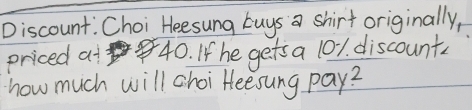 Discount. Choi Heesung buys a shirt originally,
priced at $40. If he gets a 10% discount,
how much will Choi Heesung pay?